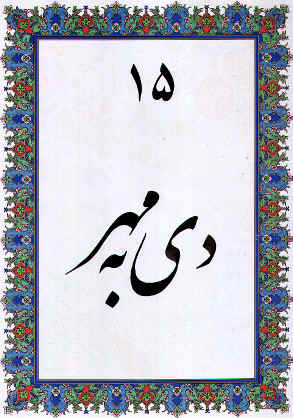 ۱۵
دی به مهر